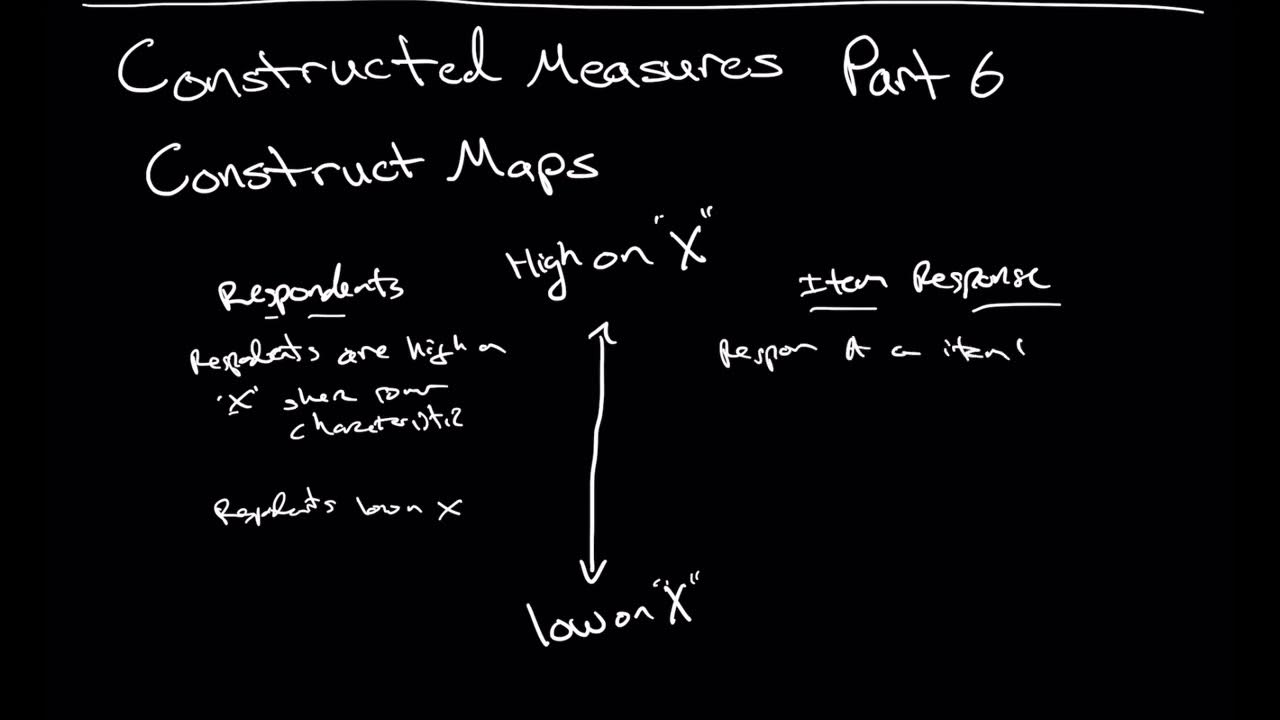 Constructed Measures Part 6
Construct Maps
High on "X"
Respondents
Respondents are high on
"X" share some
characteristic
Respondents low on X
Item Response
Respon A on item 1
low on "X"